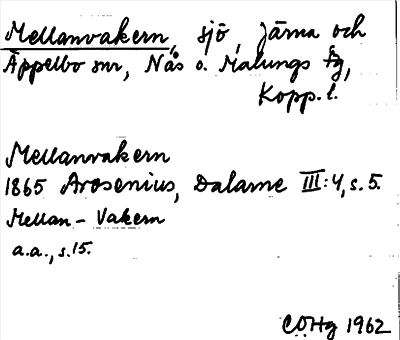 Mellanvakern, sjö, Järna och
Äppelbo snr, Näs o. Malungs fg,
Kopp. l.
Mellanvakern
1865 Arosenius, Dalarne III:4, s. 5.
Mellan - Vakern
a.a., s. 15.
COHg 1962